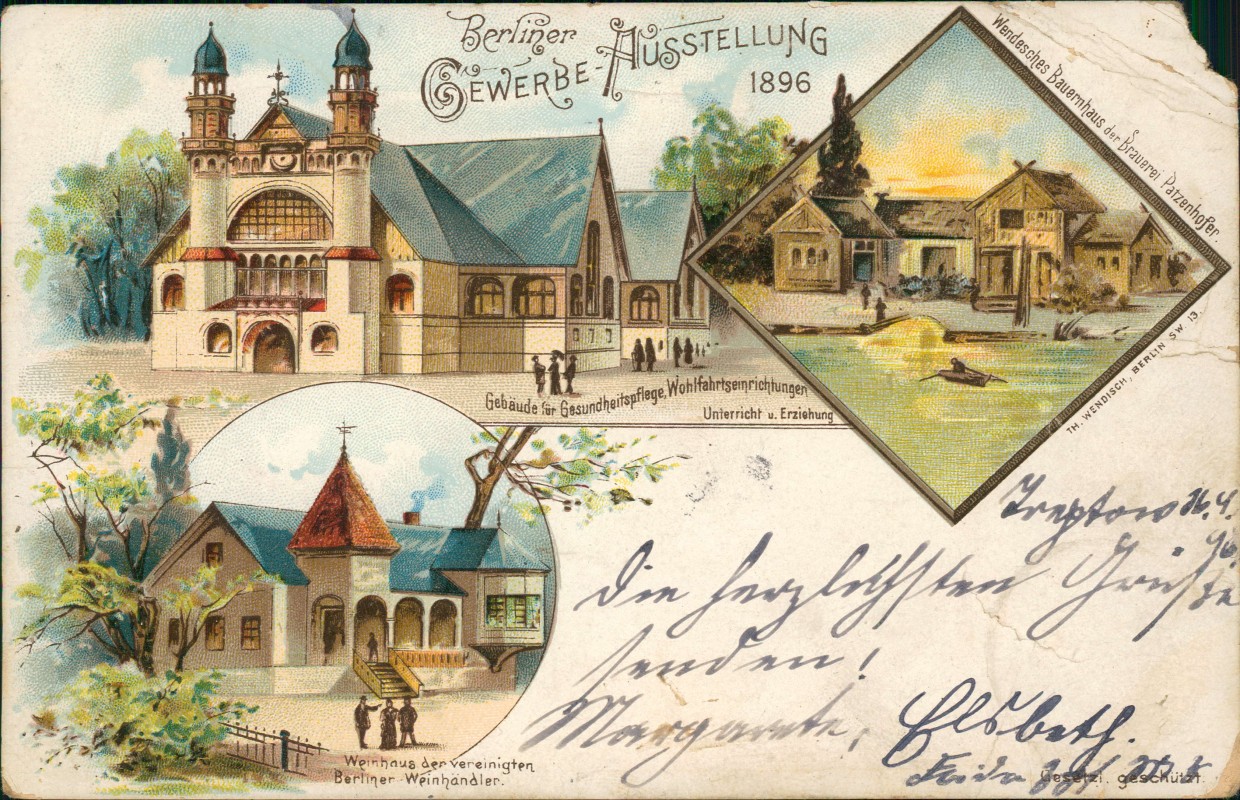 Berliner
Gewerbe-Ausstellung
1896
Wendesches Bauernhaus der Brauerei Patzenhofer.
TH. WENDISCH, BERLIN SW. 13.
Gebäude für Gesundheitspflege, Wohlfahrtseinrichtungen
Unterricht u. Erziehung
Treptow 26.4.
96.
Die herzlichsten Grüße
senden!
Margarete, Elsbeth.
Weinhaus der vereinigten
Berliner Weinhändler.
Gesetzl. geschützt.